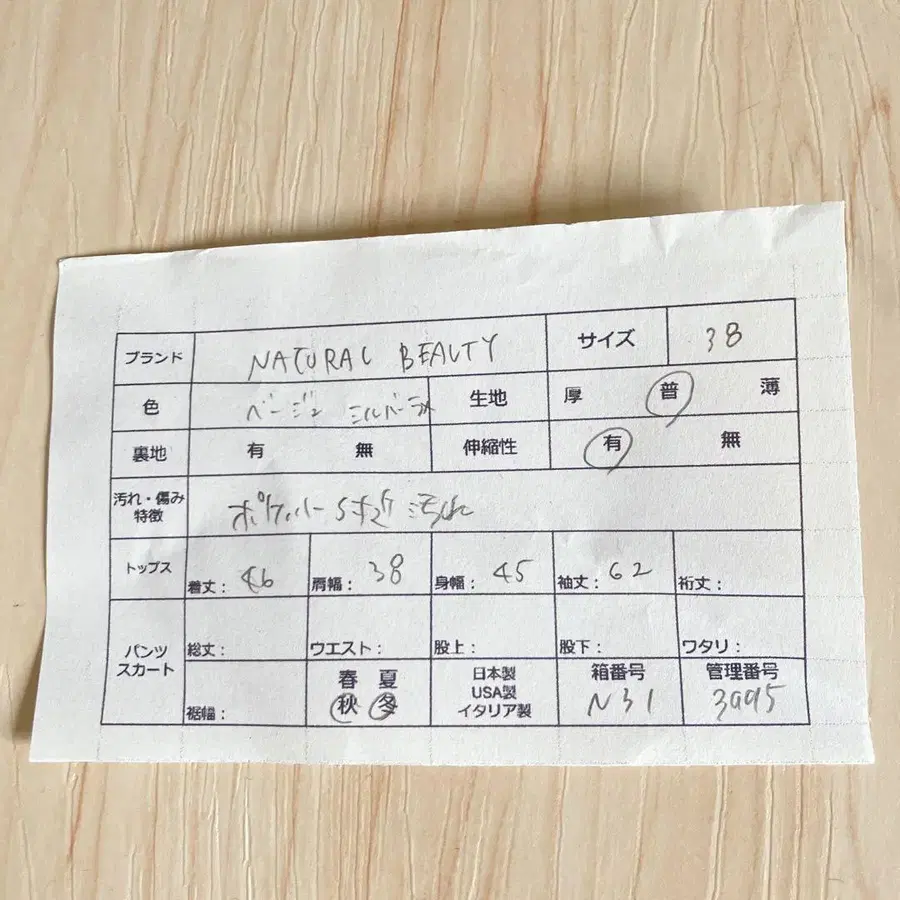 ブランド NATURAL BEAUTY サイズ 38
色 ベージュ シルバーラメ 生地 厚 普 薄
裏地 有 無 伸縮性 有 無
汚れ・傷み
特徴 汚れ
トップス 着丈: 46 肩幅: 38 身幅: 45 袖丈: 62 裄丈:
パンツ
スカート 総丈: ウエスト: 股上: 股下: ワタリ:
裾幅: 春 夏
秋 冬 日本製
USA製
イタリア製 箱番号
N31 管理番号